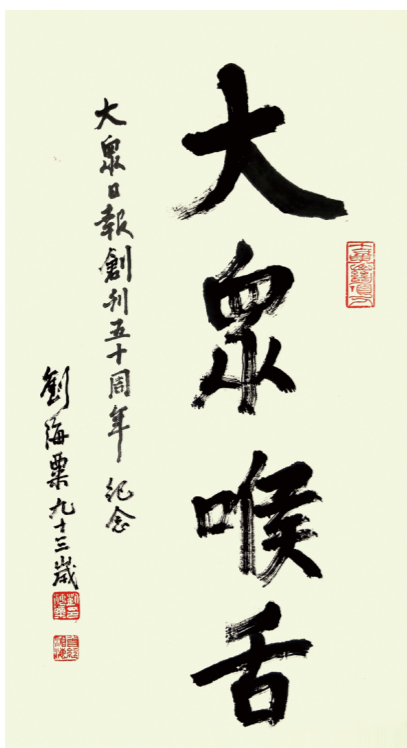 大眾喉舌
大眾日報創刊五十周年紀念
劉海粟九十三歲